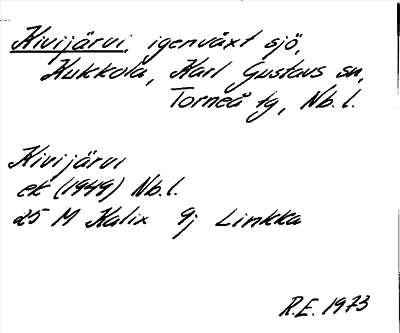 Kivijärvi, igenväxt sjö,
Kukkola, Karl Gustavs sn,
Torneå tg, Nb. l.
Kivijärvi
ek (1949) Nb. l.
25 M Kalix 9j Linkka
R.E. 1973